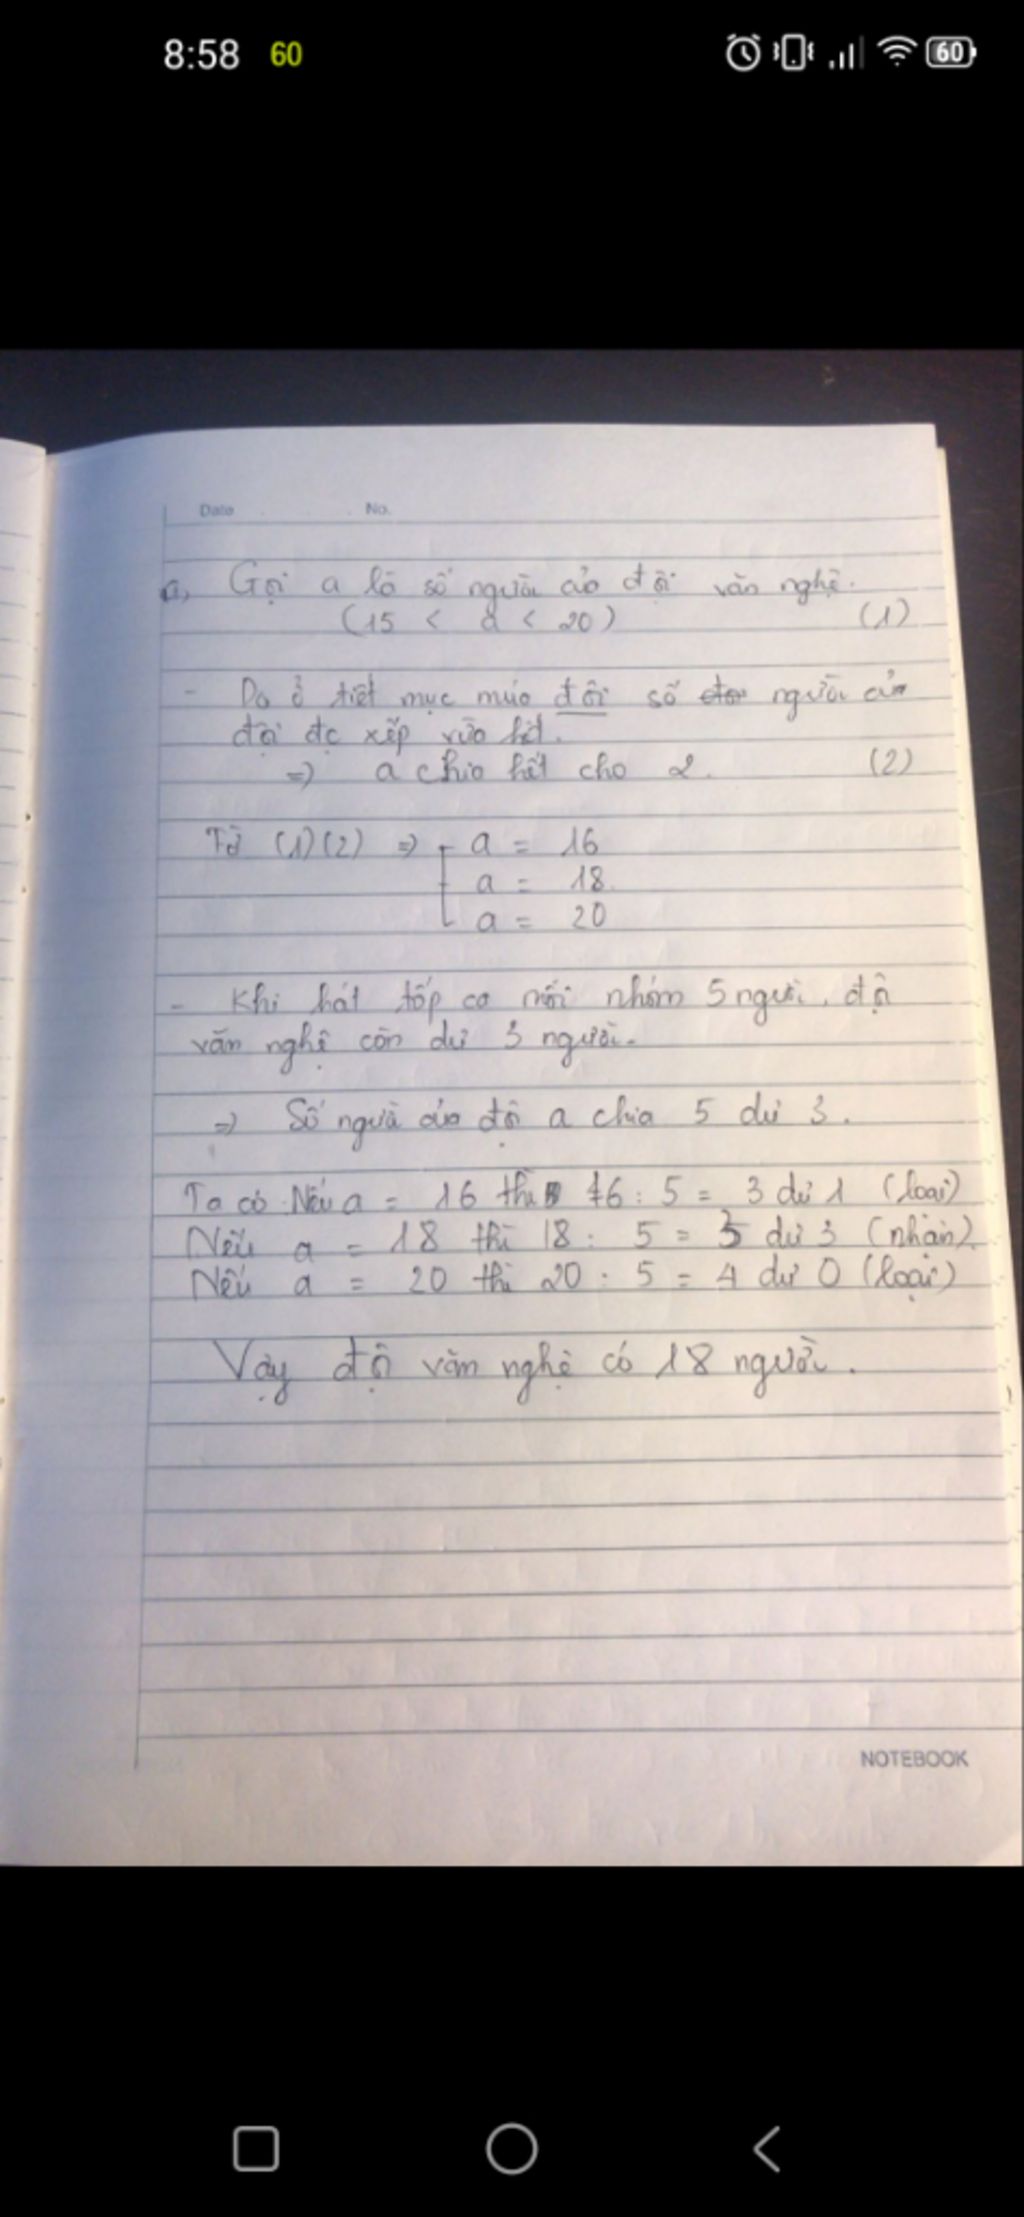 8:58 60 60
Date No.
a, Gọi a là số người của đội văn nghệ.
(15 < a < 20) (1)
- Do ở tiết mục múa đôi số người của
đội đc xếp vừa hết.
=> a chia hết cho 2. (2)
Từ (1)(2) => a = 16
a = 18
a = 20
- Khi hát tốp ca mỗi nhóm 5 người, đội
văn nghệ còn dư 3 người.
=> Số người của đội a chia 5 dư 3.
Ta có Nếu a = 16 thì 16 : 5 = 3 dư 1 (loại)
Nếu a = 18 thì 18 : 5 = 3 dư 3 (nhận)
Nếu a = 20 thì 20 : 5 = 4 dư 0 (loại)
Vậy đội văn nghệ có 18 người.
NOTEBOOK